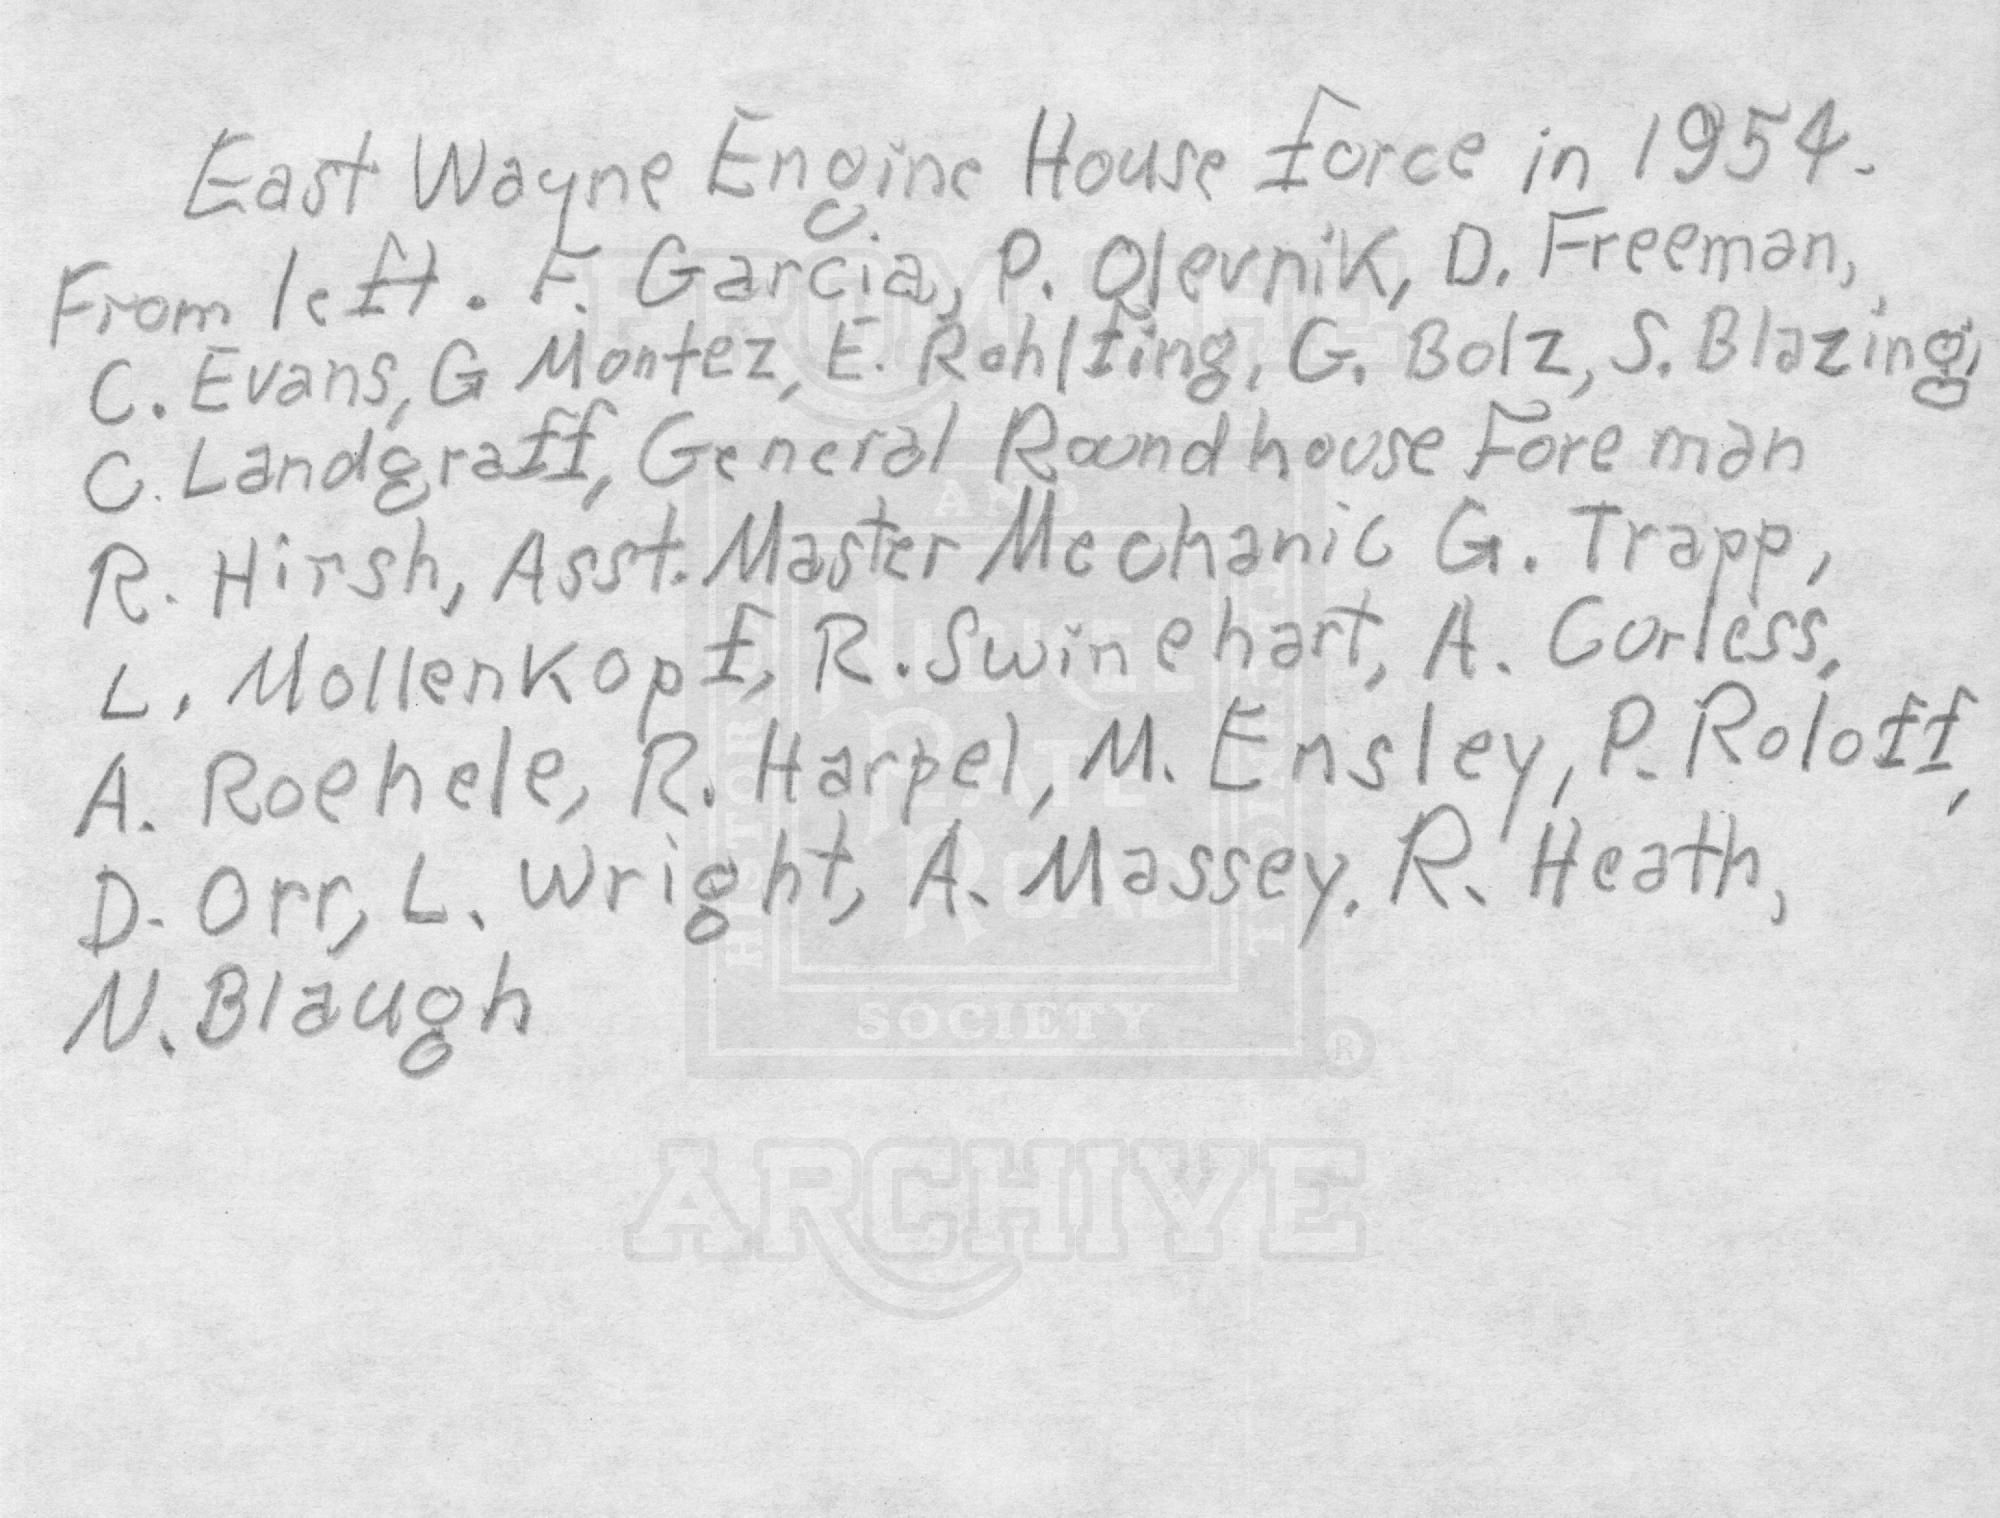 East Wayne Engine House force in 1954.
From left. F. Garcia, P. Olevnik, D. Freeman,
C. Evans, G Montez, E. Rohlfing, G. Bolz, S. Blazing,
C. Landgraff, General Roundhouse Foreman
R. Hirsh, Asst. Master Mechanic G. Trapp,
L. Mollenkopf, R. Swinehart, A. Corless,
A. Roehele, R. Harpel, M. Ensley, P. Roloff,
D. Orr, L. Wright, A. Massey. R. Heath,
N. Blaugh
FROM THE
NICKEL PLATE ROAD
HISTORICAL AND TECHNICAL SOCIETY
®
ARCHIVE